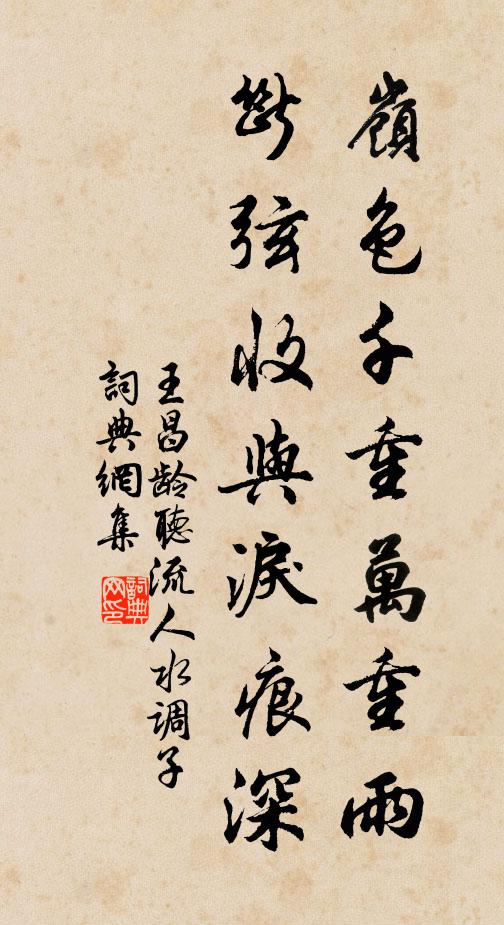 嶺色千重萬重雨
斷弦收與淚痕深
王昌龄聽流人水調子
詞典網集
詞典网印